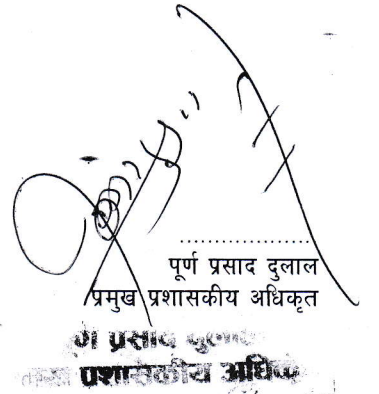 पूर्ण प्रसाद दुलाल
प्रमुख प्रशासकीय अधिकृत
प्रसाद
प्रशासकीय